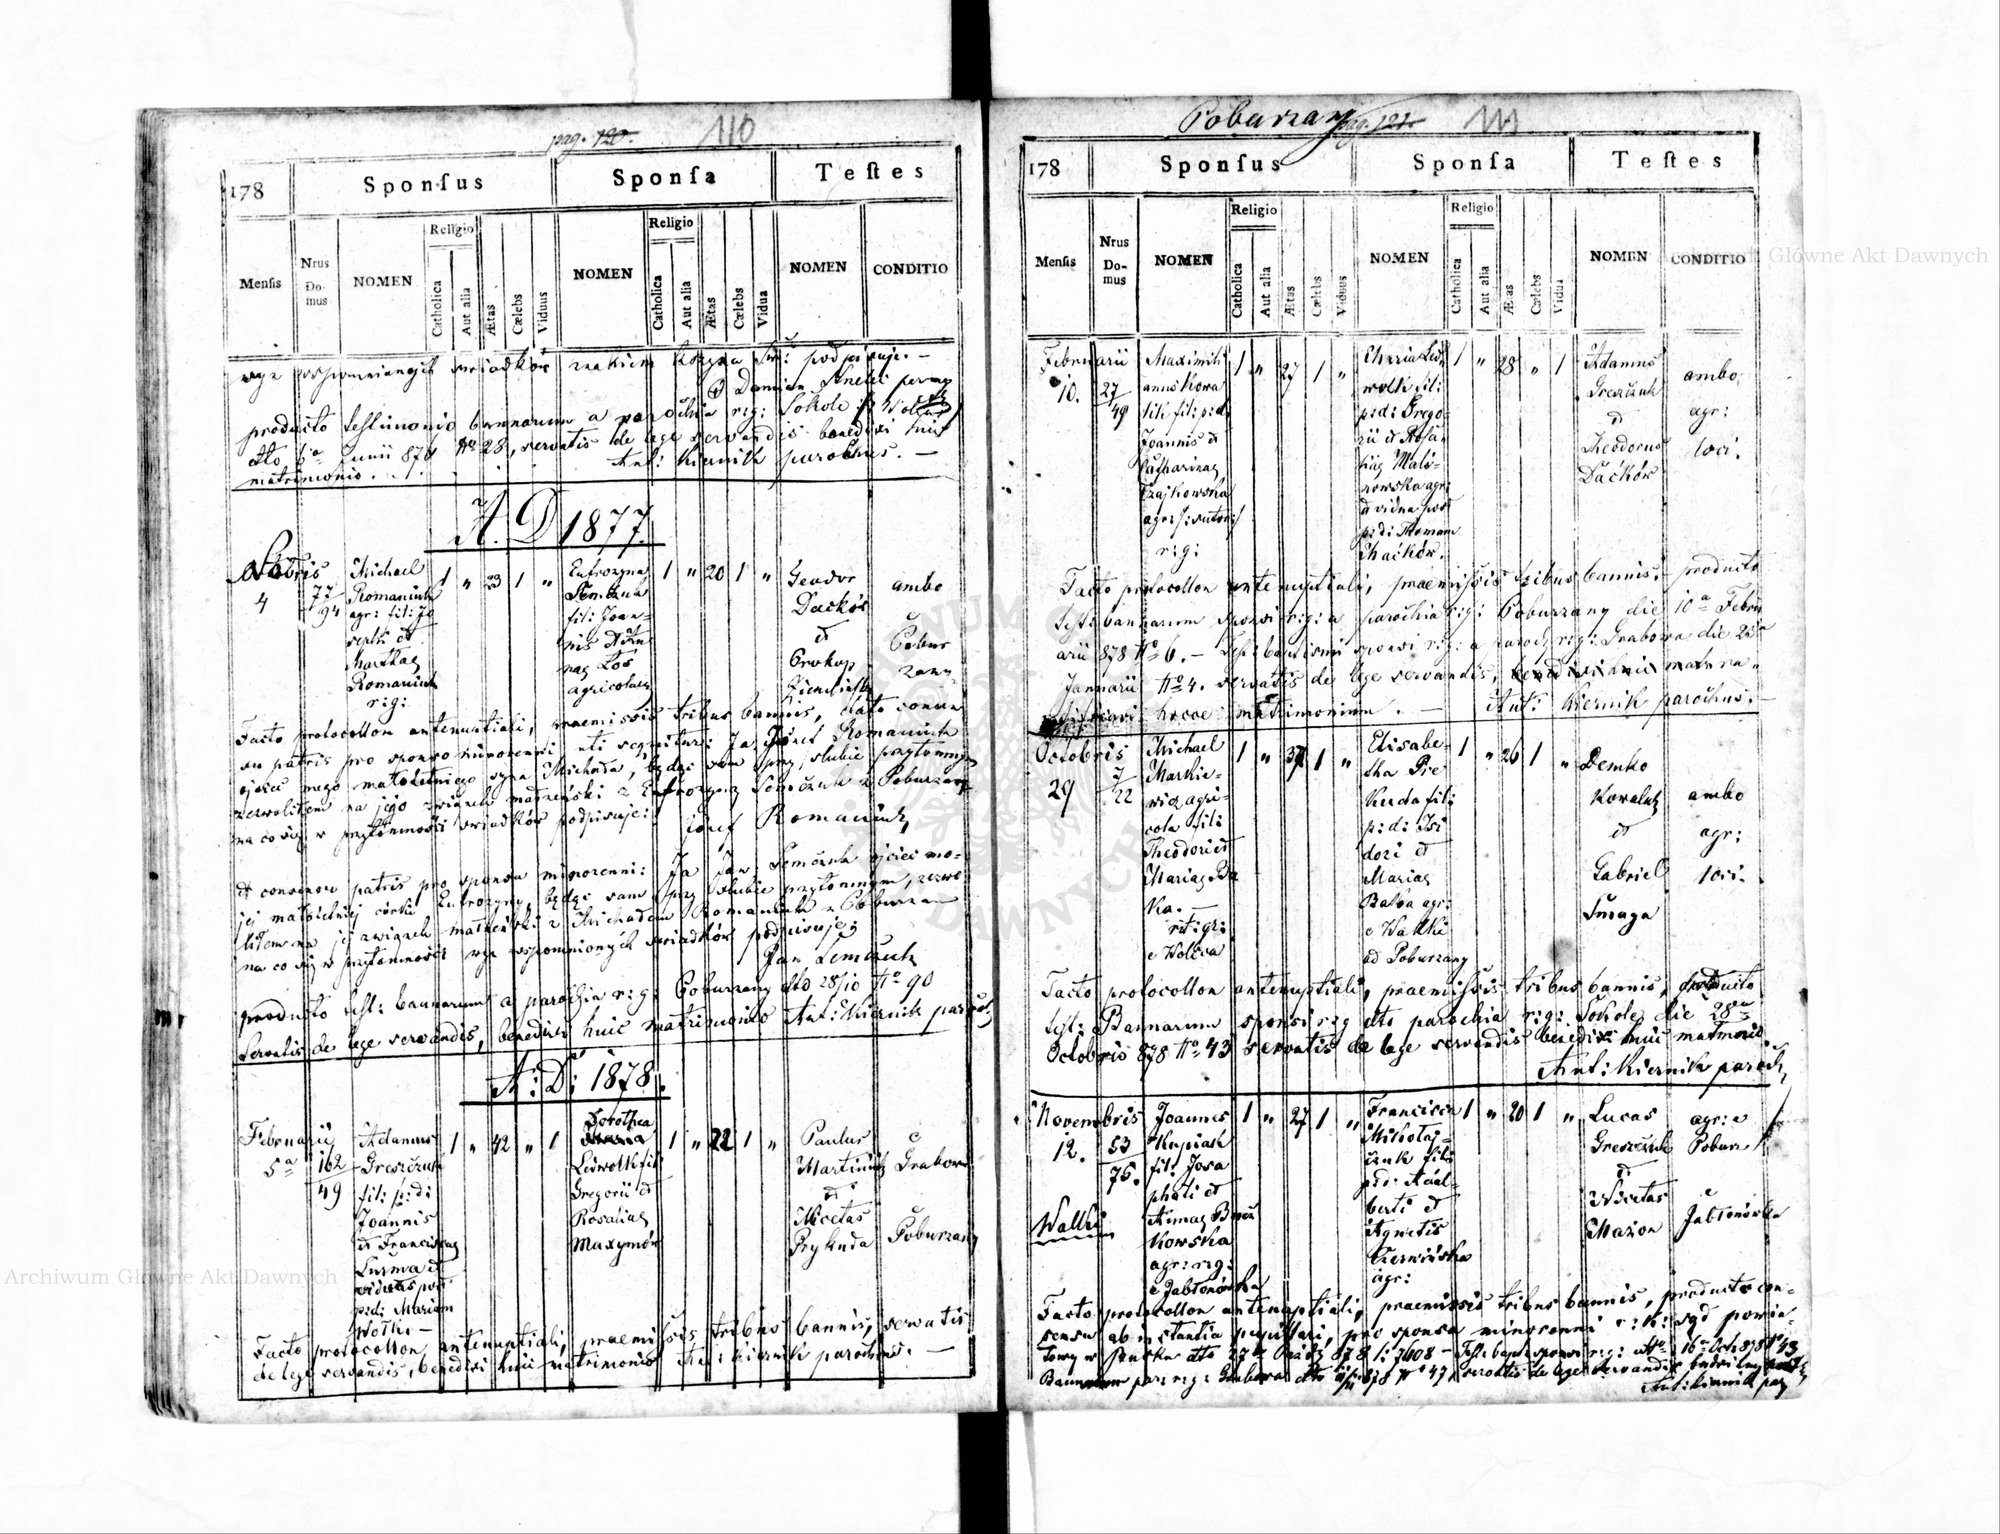 pag. 120. 110
178 Sponsus Sponsa Testes
Mensis Nrus Domus NOMEN Religio Catholica Aut alia Ætas Cælebs Viduus NOMEN Religio Catholica Aut alia Ætas Cælebs Vidua NOMEN CONDITIO
podpisuje. —
producto testimonio bannorum a parochia r: g: Sokole
dto 6ta Junii 876 No 28, servatis de lege servandis benedixi huic
matrimonio. Ant: Kiernik parochus. —
A. D 1877.
9bris
4
77
94
Michael
Romaniuk
agr: fil: Jo
sephi et
Marthae
Romaniuk
r: g:
1 " 23 1 "
Eufrozyna
Semczuk
fil: Joan-
nis et An
nae Łoś
agricolae
1 " 20 1 "
Dacków
et
Prokop
ambo
e
Pobur
zany
Facto protocollon antenuptiali, praemissis tribus bannis, dato consen
su patris pro sponso minorenni uti sequitur: Ja Józef Romaniuk
ojciec mego małoletniego syna Michała, będąc sam przy ślubie przytomnym
zezwoliłem na jego związek małżeński z Eufrozyną Semczuk z Poburzan
na co się w przytomności świadków podpisuję: Józef Romaniuk
et consensu patris pro sponsa minorenni: Ja Jan Semczuk ojciec mo-
jej małoletniej córki Eufrozyny, będąc sam przy ślubie przytomnym, zezwo
liłem na jej związek małżeński z Michałem Romaniuk z Poburzan
na co się w przytomności wyż wspomnionych świadków podpisuję:
Jan Semczuk
producto test: bannorum a parochia r: g: Poburzany dto 28/10 No 90
Servatis de lege servandis, benedixi huic matrimonio Ant: Kiernik paroch,
A: D: 1878.
Februarii
5a
162
49
Adamus
Greszczuk
fil: p: d:
Joannis
et Franciscae
Kuzma et
viduus post
p: d: Mariam
Wołk. —
1 " 42 " 1
Dorothea
Ledwolk fil:
Gregorii et
Rosaliae
Maxymów
1 " 22 1 "
Paulus
Martiniuk
et
Nicetas
Prykuda
e
Grabowa
e
Poburzany
Facto protocollon antenuptiali, praemissis tribus bannis, servatis
de lege servandis, benedixi huic matrimonio Ant: Kiernik parochus. —
Poburzany pag. 121. 111
178 Sponsus Sponsa Testes
Mensis Nrus Domus NOMEN Religio Catholica Aut alia Ætas Cælebs Viduus NOMEN Religio Catholica Aut alia Ætas Cælebs Vidua NOMEN CONDITIO
Februarii
10.
27
49
Maximili
anus Kowa
lik fil: p: d:
Joannis et
Catharinae
Czajkowska
r: g:
1 " 27 1 "
p: d: Grego-
rii et Rosa-
liae
et vidua post
p: d: Romam
1 " 28 " 1
Adamus
Greszczuk
et
Theodorus
Daćków
ambo
agr:
loci.
Facto protocollon antenuptiali, praemissis tribus bannis, producto
test: bannorum sponsi r: g: a parochia r: g: Poburzany die 10a Febru
arii 878 No 6. — Test: baptismi sponsi r: g: a paroch r: g: Grabowa die 23a
Januarii No 4. servatis de lege servandis,
hocce matrimonium. — Ant: Kiernik parochus. —
Octobris
29
7
22
Michael
Markie-
wicz agri-
cola fil:
Theodori et
Mariae Ba
ka. —
rit: gr:
e Wolica
1 " 37 1 "
Elisabe-
tha Pre
kuda fil:
p: d: Isi
dori et
Mariae
Baława agr:
e Wałki
ad Poburzany
1 " 26 1 "
Demko
Kowaluk
et
Gabriel
Smaga
ambo
agr:
loci.
Facto protocollon antenuptiali, praemissis tribus bannis, producto
test: Bannorum sponsi r: g dto parochia r: g: Sokole die 28a
Octobris 878 No 43 servatis de lege servandis benedixi huic matrimonio.
Ant: Kiernik paroch,
Novembris
12.
53
75.
Wałki
Joannes
Kupiak
fil: Josa
phati et
Annae
kowska
agr: r: g:
e Jabłonówka
1 " 27 1 "
Francisca
Mikołaj-
czuk fil:
p: d: Adal-
berti et
Agnetis
Czerwińska
agr:
1 " 20 1 "
Lucas
Greszczuk
et
Nicetas
Mazon
agr: e
Jabłonówka
Facto protocollon antenuptiali, praemissis tribus bannis, producto con-
sensu ab instantia pupillari, pro sponsa minorenni r: k: sąd powia-
towy w Busku dto 27 878 l: 7608 — Test: bapt: sponsi r: g: dto 16 Oct 878 No 43
par: r: g: Grabowa dto 878 No 47, servatis de lege servandis
Ant: Kiernik par
Archiwum Główne Akt Dawnych
Archiwum Główne Akt Dawnych